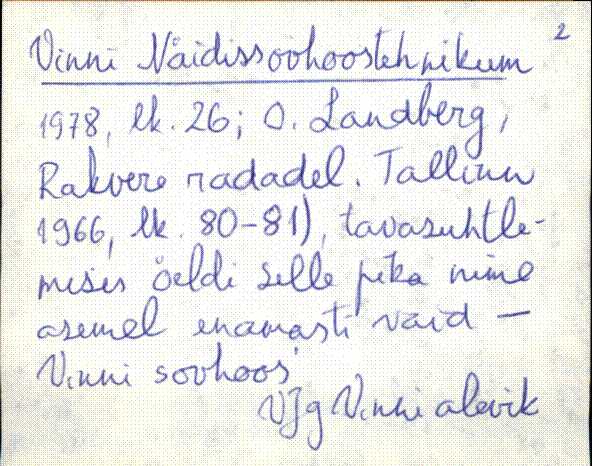 2
Vinni Näidissovhoostehnikum
1978, lk. 26; O. Landberg,
Rakvere radadel. Tallinn
1966, lk. 80-81), tavasuhtle-
mises öeldi selle pika nime
asemel enamasti vaid —
Vinni sovhoos'
VJg Vinni alevik